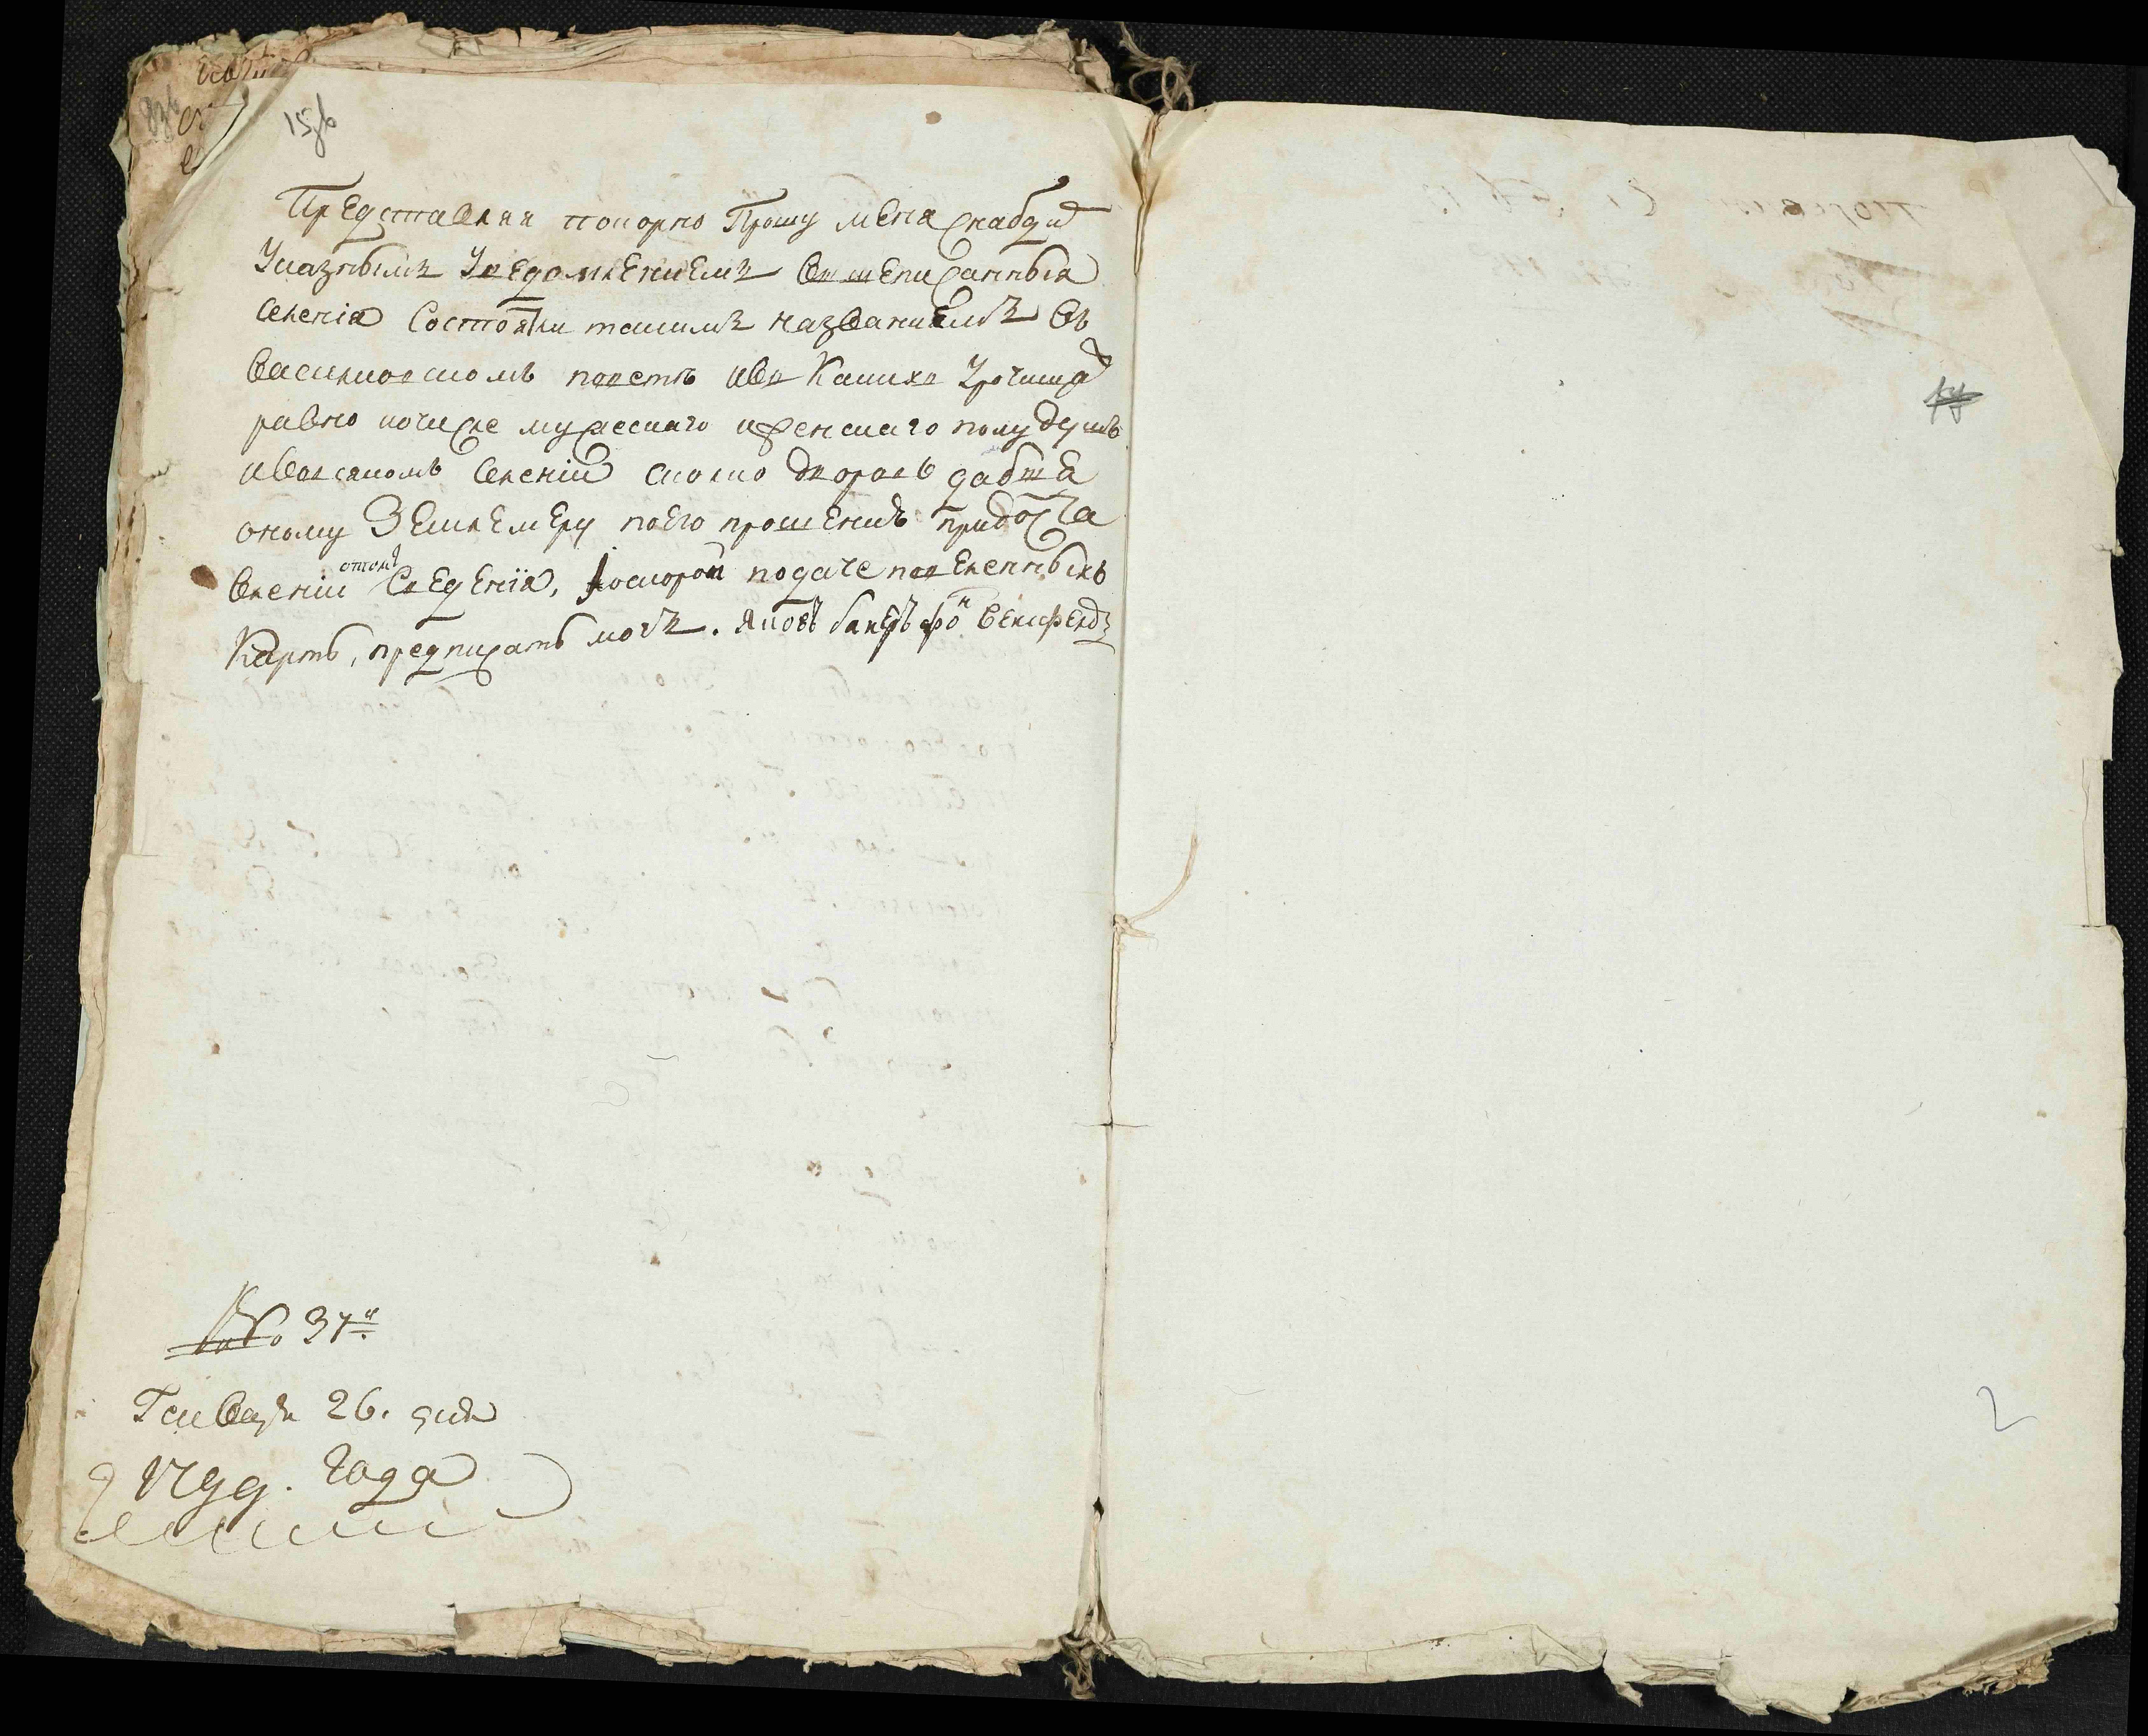 Представляя покорно Прошу меня снабдит
Указнымъ Уведомлениемъ вышеписанныя
селенія Состоятли такимъ названиемъ въ
васильковскомъ поветъ ивъ Какихъ Урочищах
равно почисле мужескаго иженскаго полу душъ
ивовсякомъ селеніи сколко дворовъ дабы
оному Землемеру поего прошению придоста
влении отомъ сведенія, оскорой подаче поведенныхъ
Картъ, предписать могъ. Яковъ фон
No 37й
Генваря 26. дня
1799. года
2